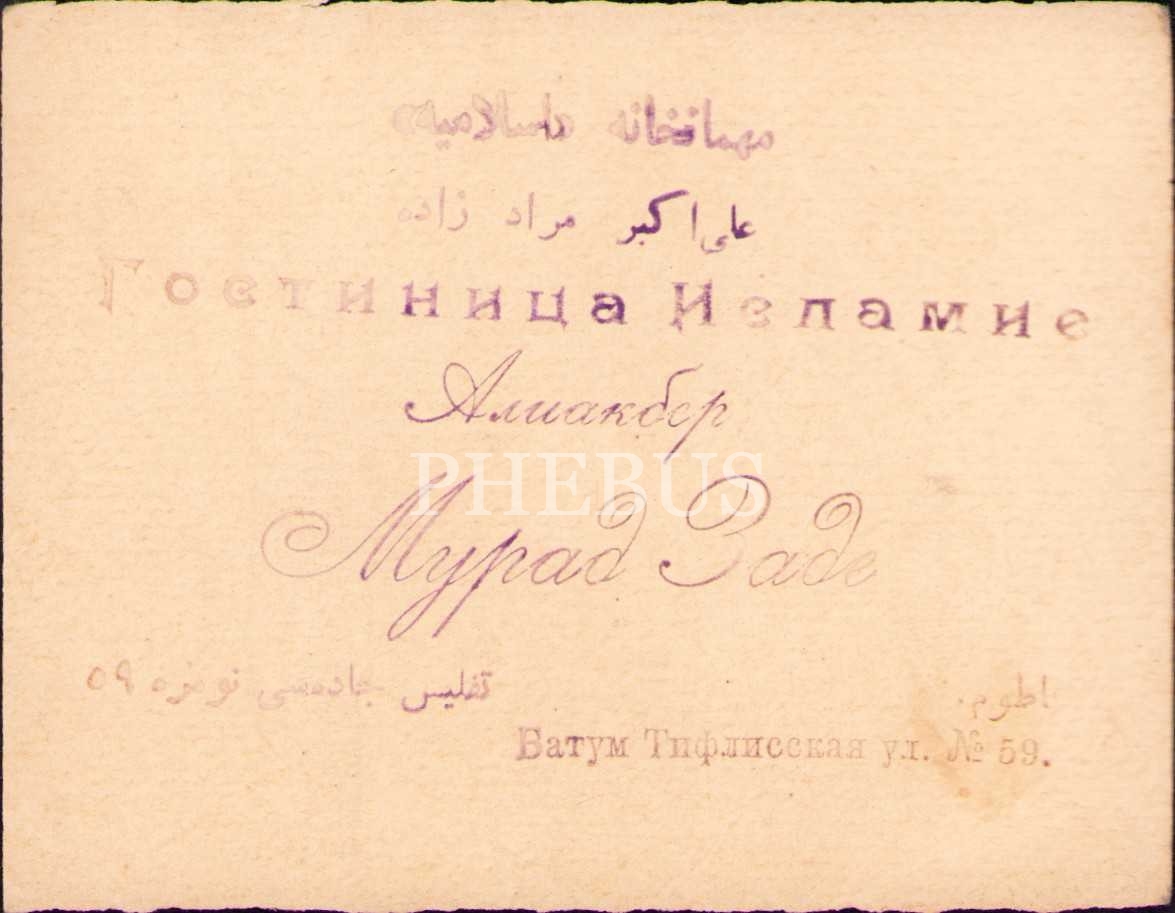 مهمانخانه «اسلامیه»
علی اکبر مراد زاده
Гостиница Исламие
Алиакбер
PHEBUS
Мурад Заде
تفلیس جاده‌سی نومره ٥٩
Батум Тифлисская ул. № 59.